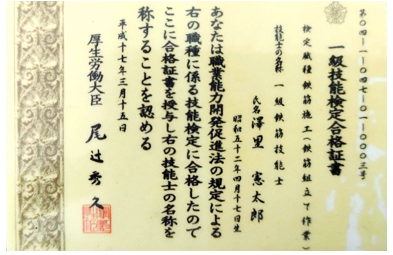 第〇四-一-〇四七-〇一-〇〇〇三号
一級技能検定合格証書
検定職種 鉄筋施工(鉄筋組立て作業)
技能士の名称 一級鉄筋技能士
氏名 澤里 憲太郎
昭和五十二年四月十七日生
あなたは職業能力開発促進法の規定による
右の職種に係る技能検定に合格したので
ここに合格証書を授与し右の技能士の名称を
称することを認める
平成十七年三月十五日
厚生労働大臣 尾辻秀久